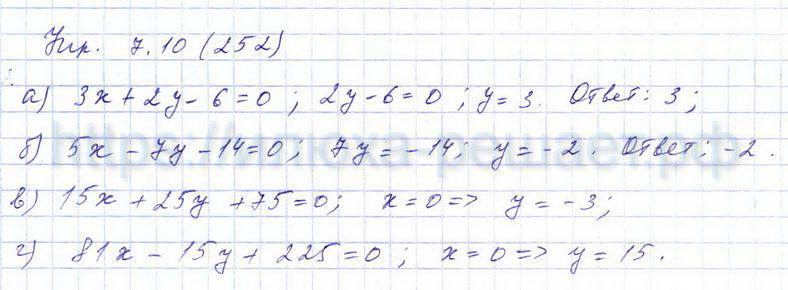 Упр. 7.10 (252)
а) 3x + 2y - 6 = 0 ; 2y - 6 = 0 ; y = 3. Ответ: 3 ;
б) 5x - 7y - 14 = 0 ; 7y = -14 ; y = -2 . Ответ: -2 .
в) 15x + 25y + 75 = 0 ; x = 0 => y = -3 ;
г) 81x - 15y + 225 = 0 ; x = 0 => y = 15 .
https://илюха-решает.рф